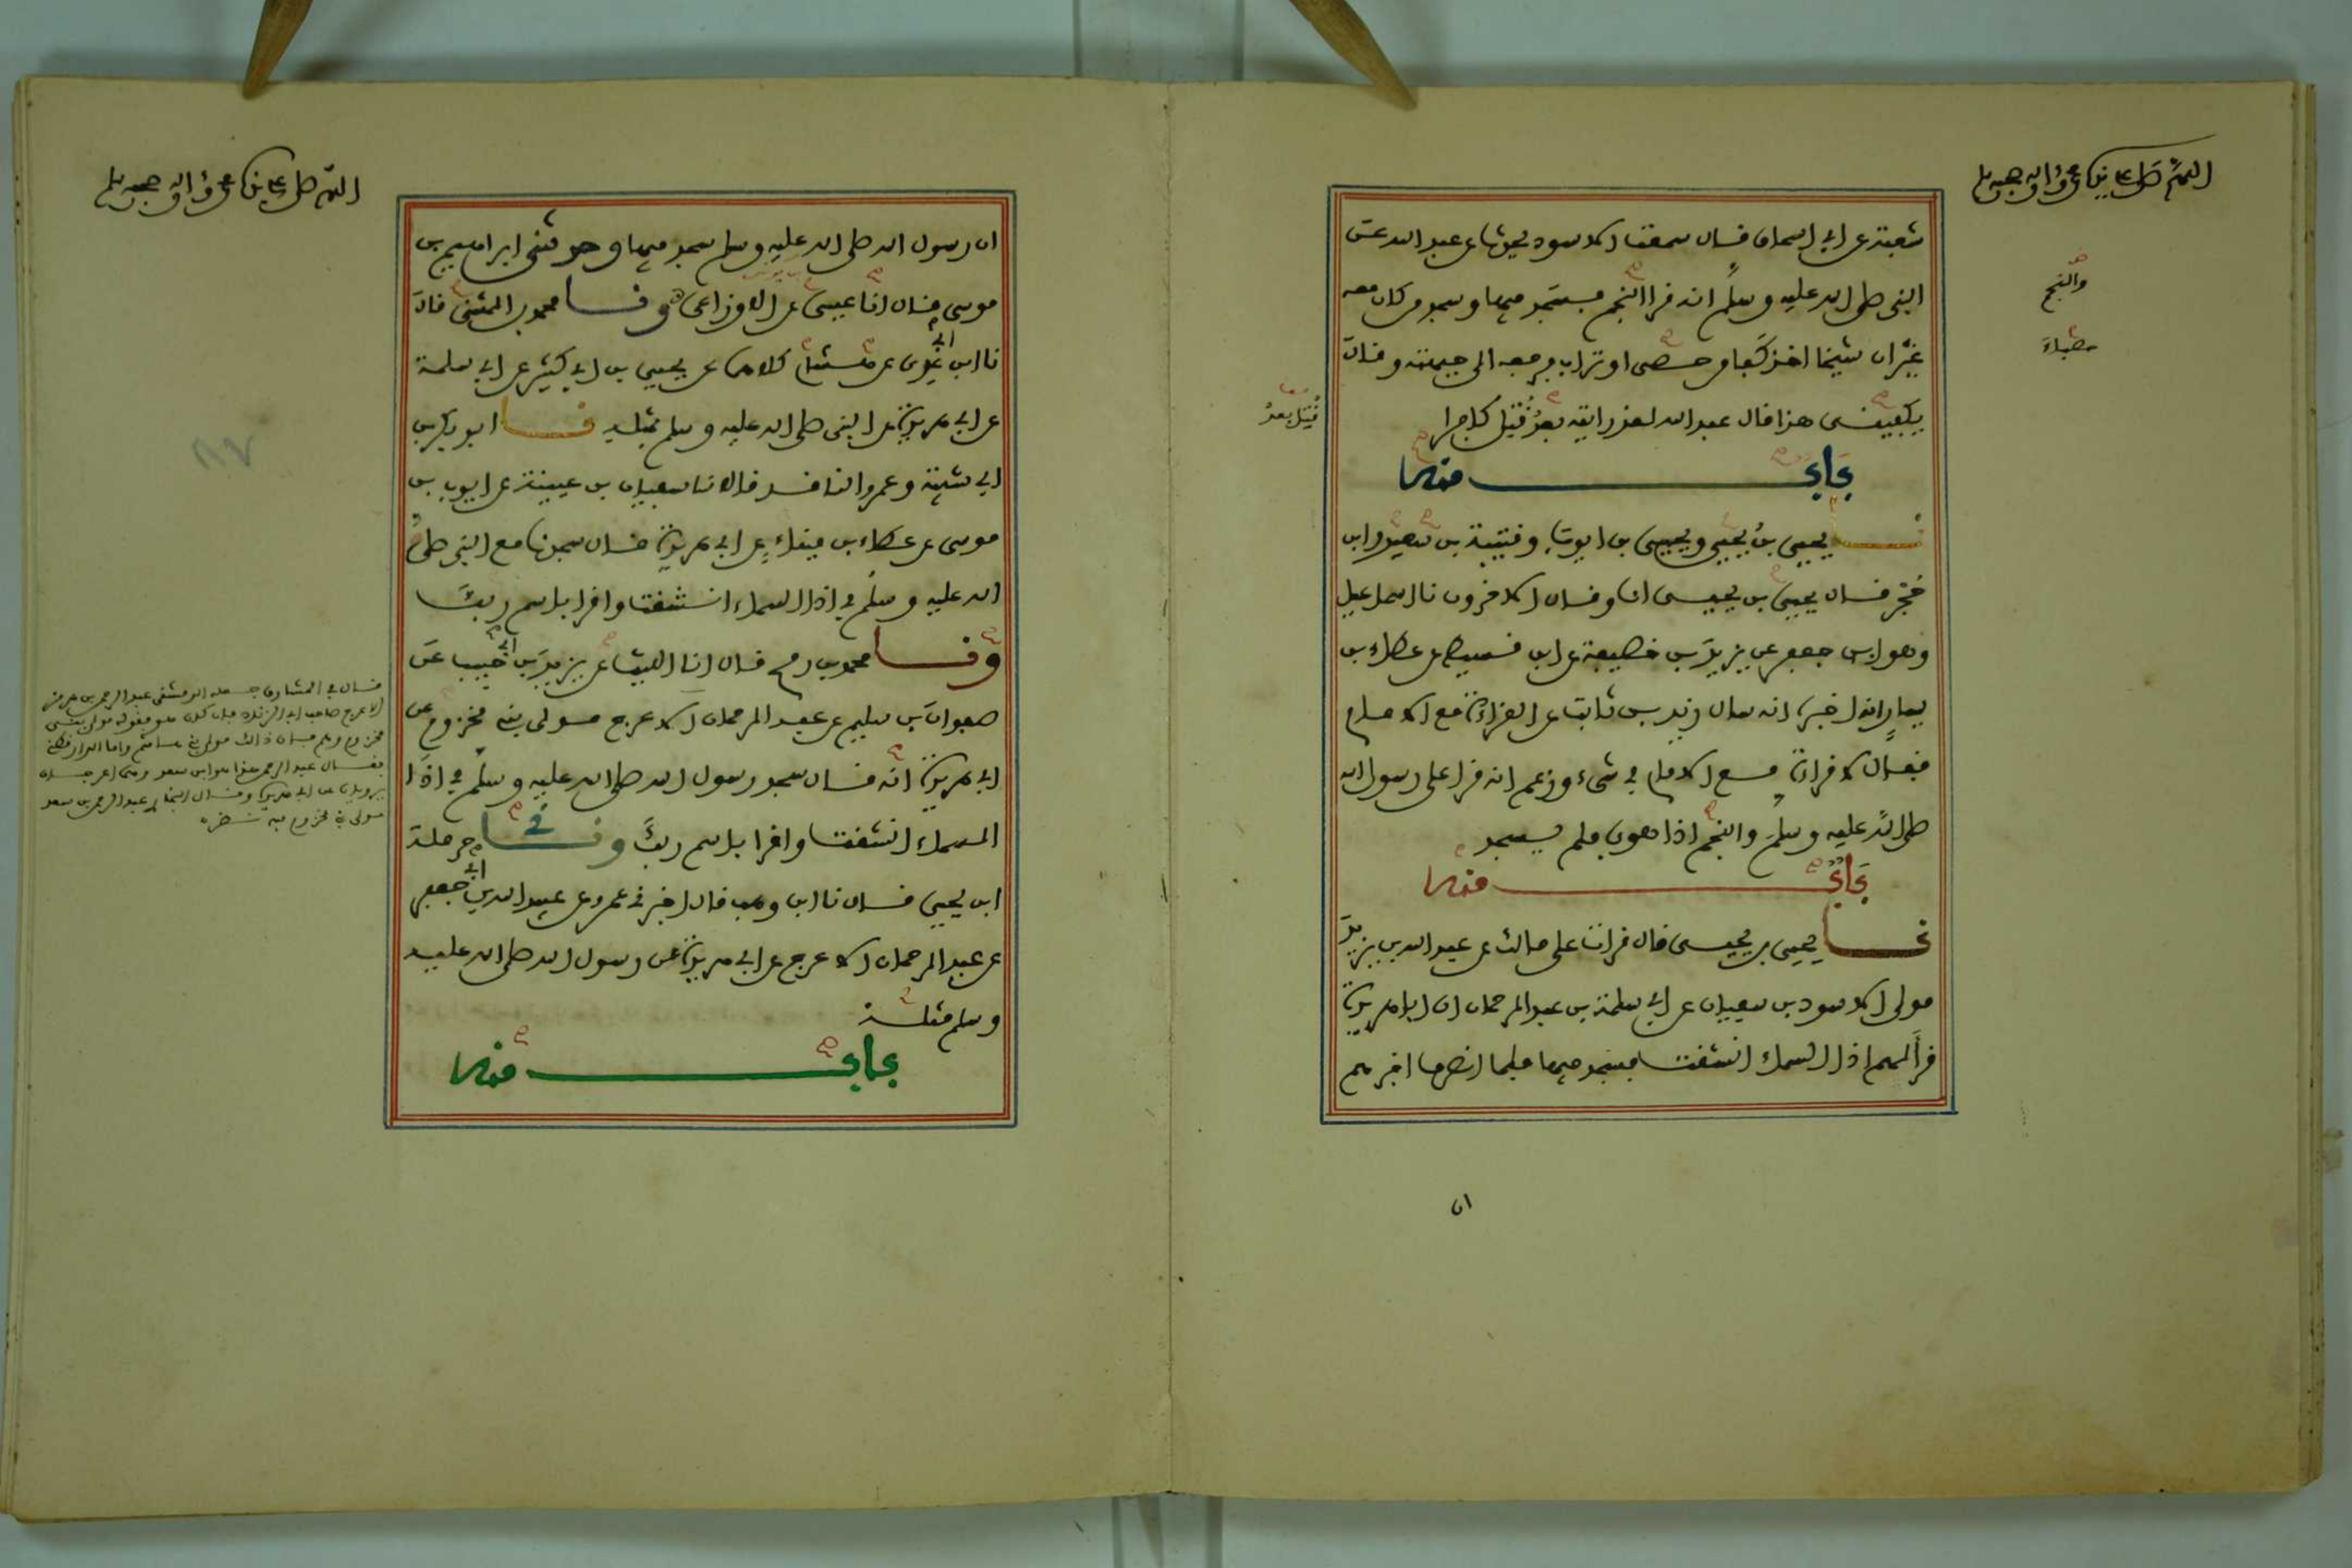 اللهم صل على سيدنا محمد وآله وصحبه وسلم
شعبة عن ابي اسحاق قال سمعت الاسود يحدث عن عبد الله عن
النبي صلى الله عليه وسلم انه قرا النجم فسجد فيها وسجد من كان معه
والنجم
غير ان شيخا اخذ كفا من حصى او تراب فرفعه الى جبهته وقال
حصباء
يكفيني هذا قال عبد الله لقد رايته بعد قتل كافرا
قتل بعد
باب منه
نا يحيى بن يحيى ويحيى بن ايوب وقتيبة بن سعيد وابن
حجر قال يحيى بن يحيى انا وقال الاخرون نا اسماعيل
وهو ابن جعفر عن يزيد بن خصيفة عن ابن قسيط عن عطاء بن
يسار انه اخبره انه سال زيد بن ثابت عن القراءة مع الامام
فقال لا قراءة مع الامام في شيء وزعم انه قرا على رسول الله
صلى الله عليه وسلم والنجم اذا هوى فلم يسجد
باب منه
نا يحيى بن يحيى قال قرات على مالك عن عبد الله بن يزيد
مولى الاسود بن سفيان عن ابي سلمة بن عبد الرحمان ان ابا هريرة
قرأ لهم اذا السماء انشقت فسجد فيها فلما انصرف اخبرهم
ان
اللهم صل على سيدنا محمد وآله وصحبه وسلم
ان رسول الله صلى الله عليه وسلم سجد فيها وحدثني ابراهيم بن
موسى قال انا عيسى عن الاوزاعي ونا محمد بن المثنى قال
نا ابن ابي عدي عن هشام كلاهما عن يحيى بن ابي كثير عن ابي سلمة
عن ابي هريرة عن النبي صلى الله عليه وسلم بمثله نا ابو بكر بن
ابي شيبة وعمرو الناقد قالا نا سفيان بن عيينة عن ايوب بن
موسى عن عطاء بن ميناء عن ابي هريرة قال سجدنا مع النبي صلى
الله عليه وسلم في اذا السماء انشقت واقرا باسم ربك
ونا محمد بن رمح قال انا الليث عن يزيد بن ابي حبيب عن
صفوان بن سليم عن عبد الرحمان الاعرج مولى بني مخزوم عن
ابي هريرة انه قال سجد رسول الله صلى الله عليه وسلم في اذا
السماء انشقت واقرا باسم ربك وني حرملة
ابن يحيى قال نا ابن وهب قال اخبرني عمرو عن عبيد الله بن ابي جعفر
عن عبد الرحمان الاعرج عن ابي هريرة عن رسول الله صلى الله عليه
وسلم مثله
باب منه
قال في المشارق جعله الدمشقي عبد الرحمن بن هرمز
الاعرج صاحب ابي الزناد
مخزوم
فقال عبد الرحمن هذا هو ابن سعد
يرويان عن ابي هريرة وقال البخاري عبد الرحمن بن سعد
مولى بني مخزوم